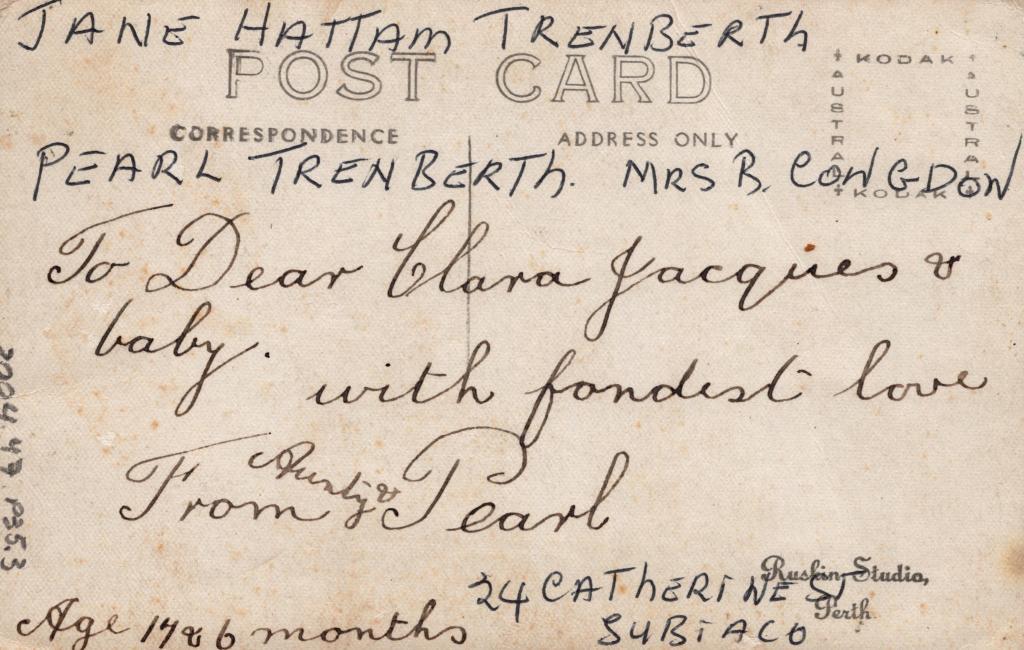 JANE HATTAM TRENBERTH
POST CARD
KODAK
AUSTRAL
AUSTRAL
KODAK
CORRESPONDENCE
ADDRESS ONLY
PEARL TRENBERTH. MRS B. CONGDON
To Dear Clara Jacques &
baby.
with fondest love
From Aunty & Pearl
Ruskin Studio,
Perth
24 CATHERINE ST
SUBIACO
Age 17 & 6 months
2004.47 P353